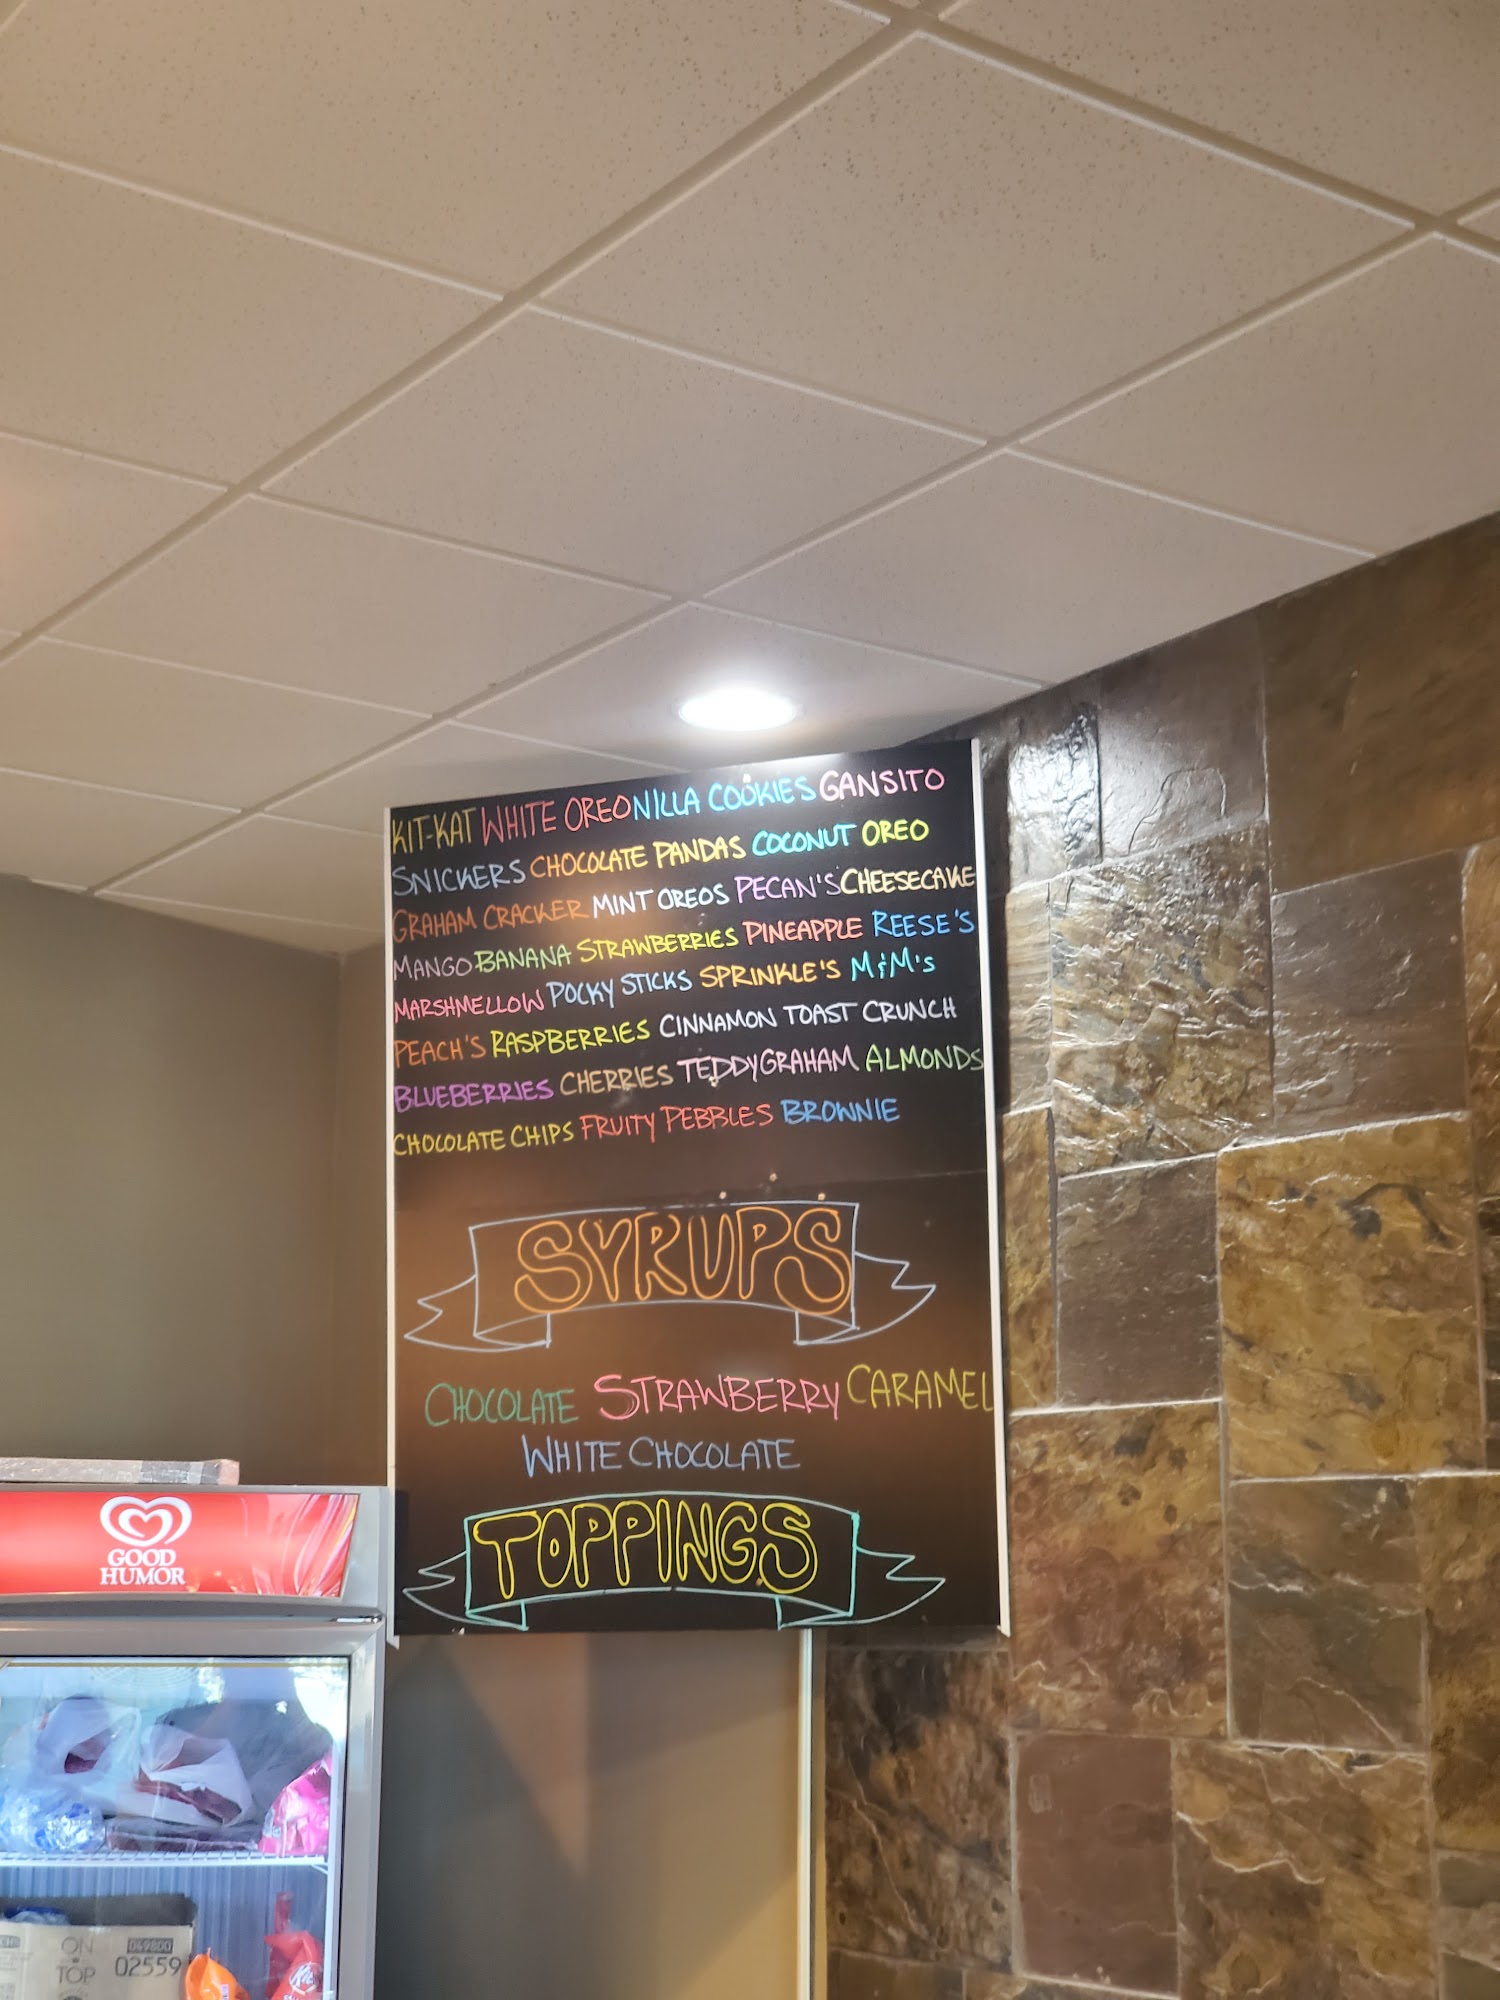 KIT-KAT WHITE OREO NILLA COOKIES GANSITO
SNICKERS CHOCOLATE PANDAS COCONUT OREO
GRAHAM CRACKER MINT OREOS PECAN'S CHEESECAKE
MANGO BANANA STRAWBERRIES PINEAPPLE REESE'S
MARSHMELLOW POCKY STICKS SPRINKLE'S M&M's
PEACH'S RASPBERRIES CINNAMON TOAST CRUNCH
BLUEBERRIES CHERRIES TEDDYGRAHAM ALMONDS
CHOCOLATE CHIPS FRUITY PEBBLES BROWNIE
SYRUPS
CHOCOLATE STRAWBERRY CARAMEL
WHITE CHOCOLATE
TOPPINGS
GOOD
HUMOR
ON
TOP
049800
02559